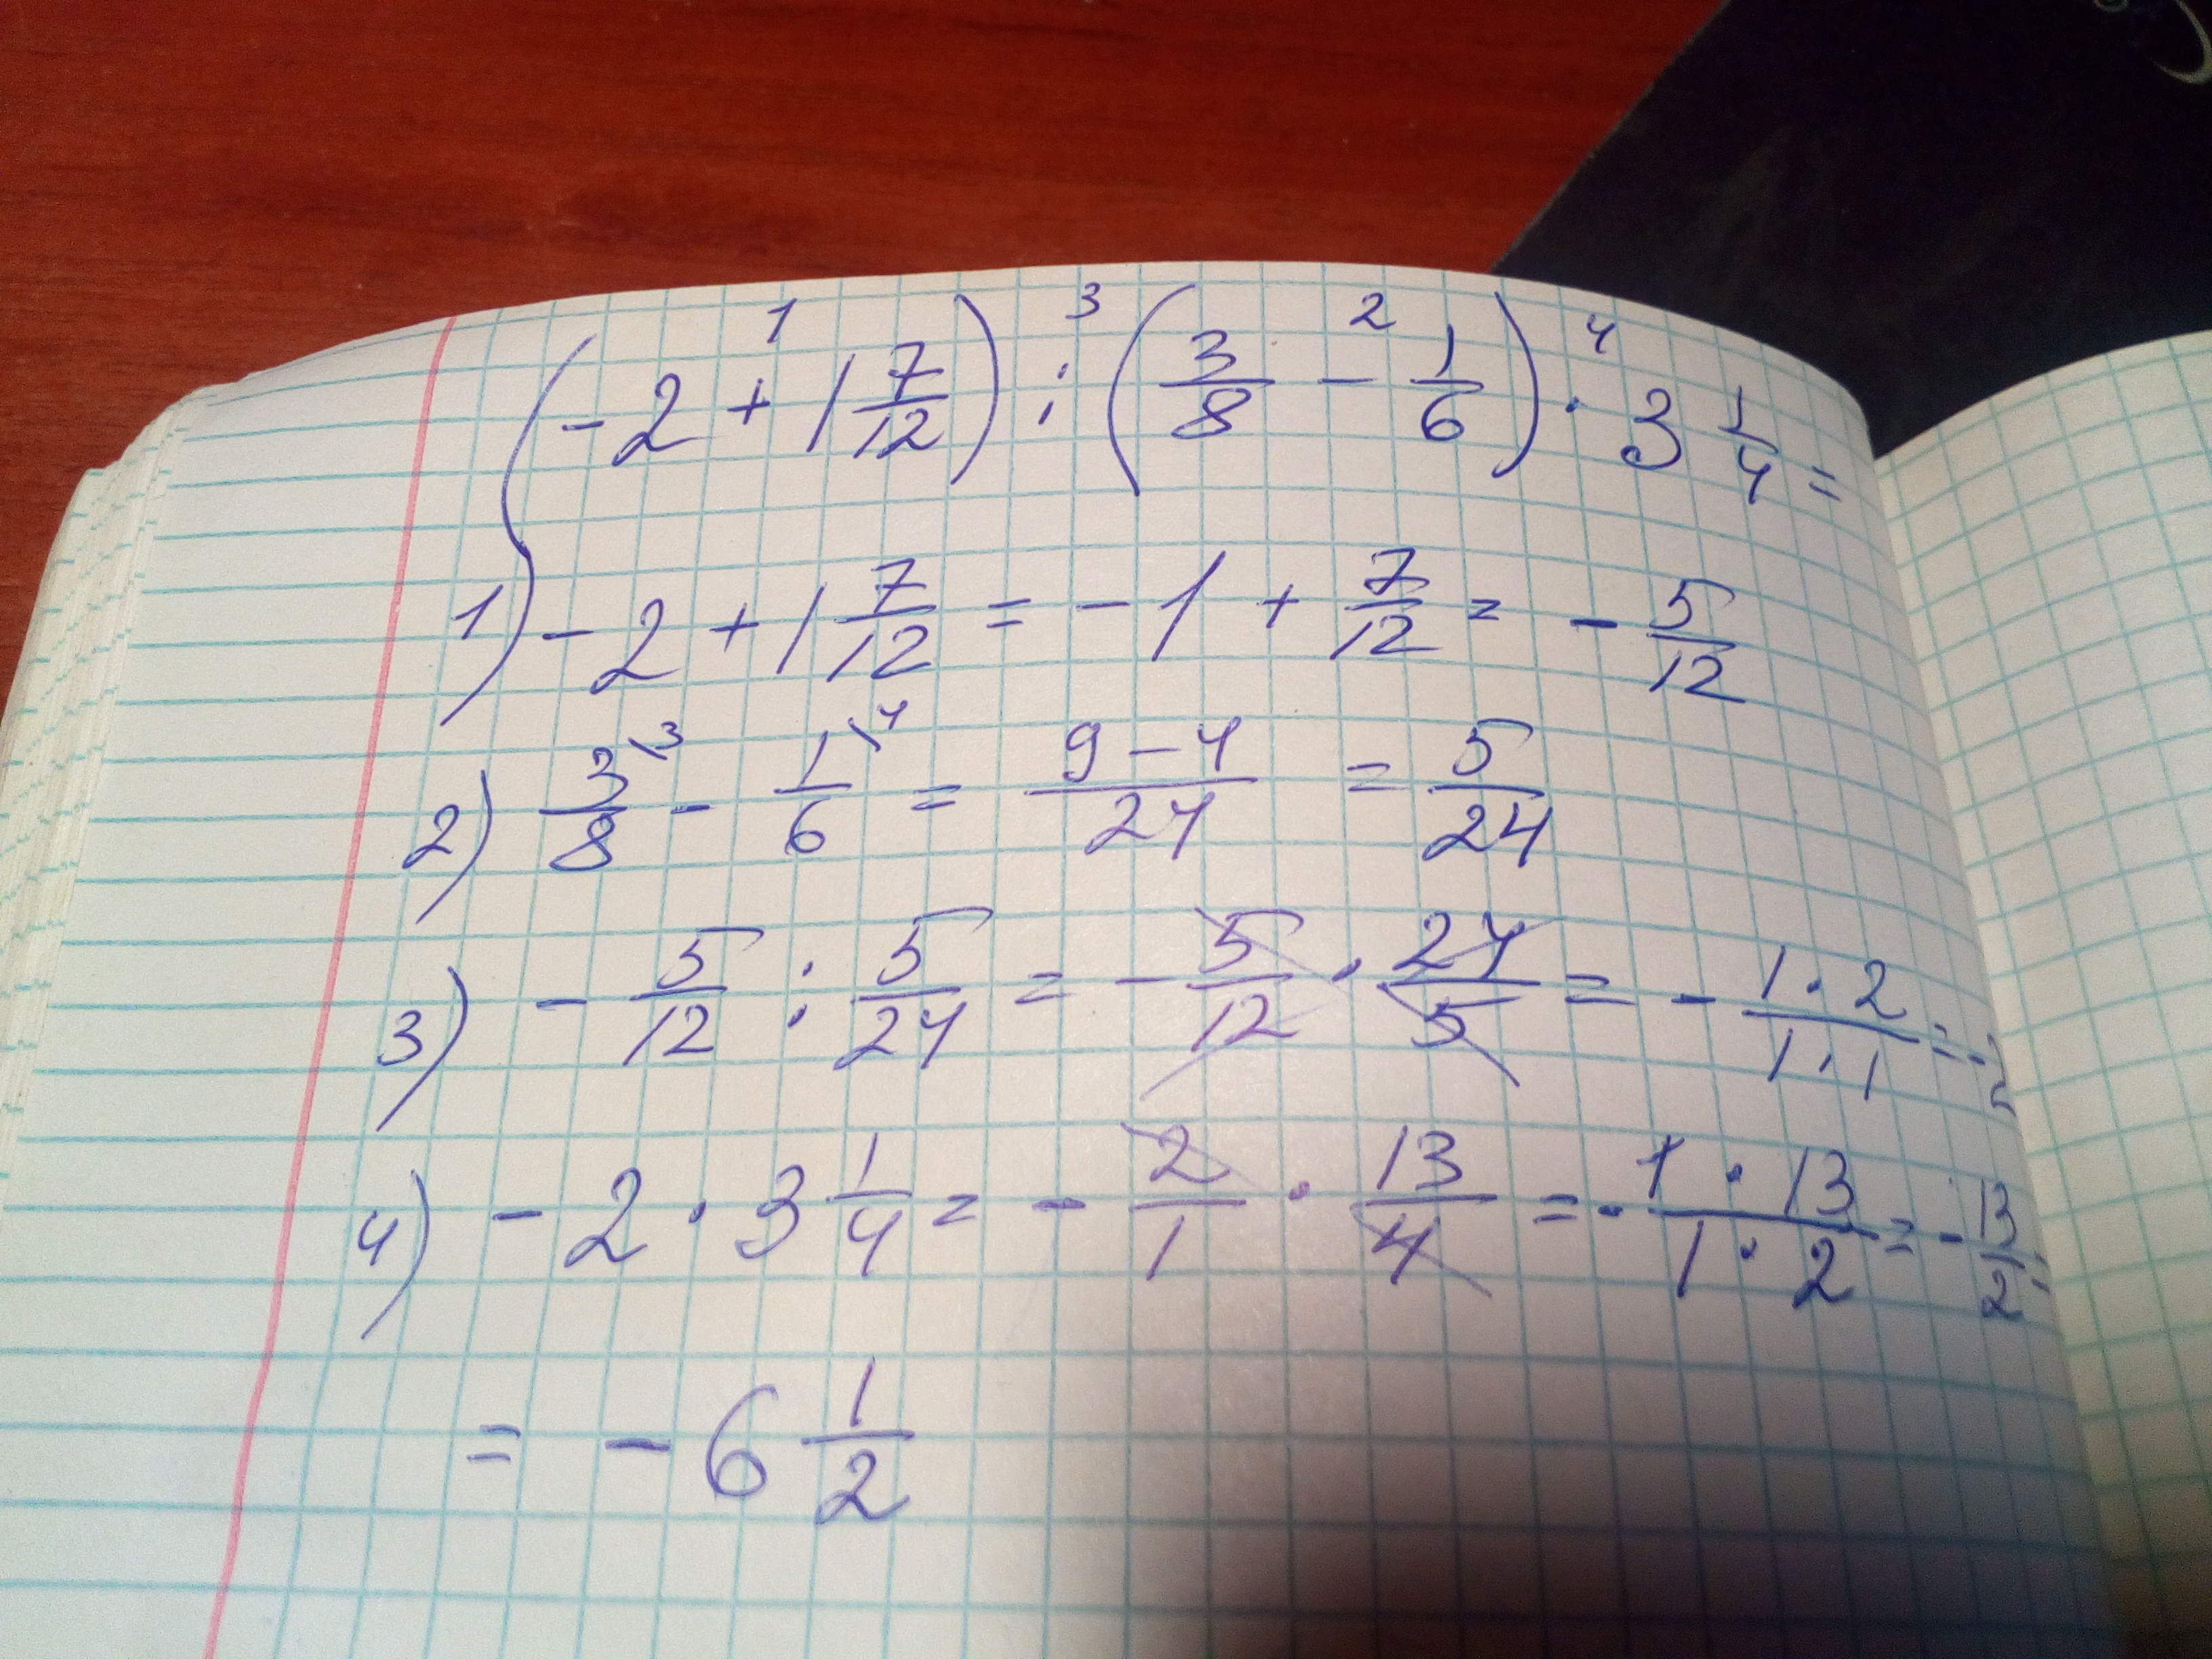 1 3 2 4
(-2 + 1 7/12) : (3/8 - 1/6) · 3 1/4 =
1) -2 + 1 7/12 = -1 + 7/12 = - 5/12
2) 3/8 \3 - 1/6 \4 = 9-4/24 = 5/24
3) - 5/12 : 5/24 = - 5/12 · 24/5 = - 1·2/1·1 = -2
4) -2 · 3 1/4 = - 2/1 · 13/4 = - 1·13/1·2 = - 13/2 =
= -6 1/2